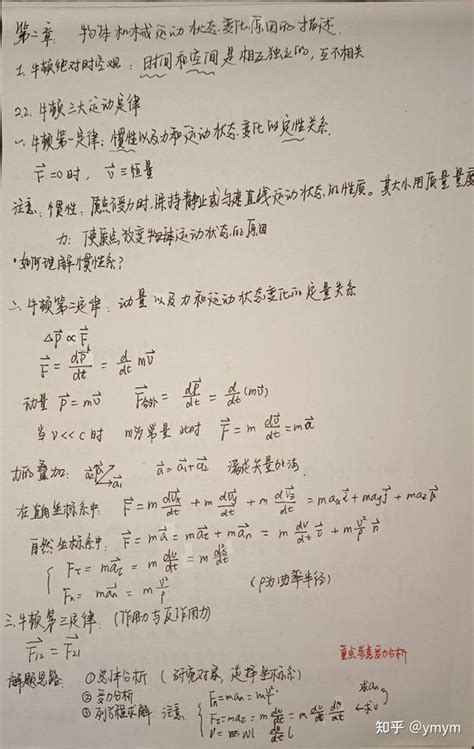 第二章 物体机械运动状态变化原因的描述.
2.1. 牛顿绝对时空观：时间和空间是相互独立的，互不相关
2.2. 牛顿三大运动定律
一.牛顿第一定律：惯性以及力和运动状态变化的定性关系.
F⃗=0时， v⃗=恒量
注意：惯性：质点不受力时，保持静止或匀速直线运动状态的性质。其大小用质量量度
力：使质点改变物体运动状态的原因
·如何理解惯性系？
二.牛顿第二定律：动量以及力和运动状态变化的定量关系
ΔP⃗∝F⃗
F⃗ = dP⃗/dt = d/dt mv⃗
动量 P⃗=mv⃗ F⃗合外 = dP⃗/dt = d/dt (mv⃗)
当 v<<c 时 m为常量 此时 F⃗ = m dv⃗/dt = ma⃗
力的叠加： a⃗2 a⃗1 a⃗=a⃗1+a⃗2 满足矢量加法.
在直角坐标系中 F⃗ = m dv⃗x/dt + m dv⃗y/dt + m dv⃗z/dt = maxi⃗+mayj⃗+mazk⃗
自然坐标系中： F⃗ = ma⃗ = ma⃗τ+ma⃗n = m dv/dt τ⃗ + m v²/ρ n⃗
{ Fτ = maτ = m dv/dt = m
Fn = man = m v²/ρ (ρ为曲率半径)
三.牛顿第三定律：(作用力与反作用力)
F⃗12 = F⃗21
重点考察受力分析
解题思路： ①总体分析 ( 研究对象，选择坐标系)
②受力分析
③列方程求解 注意： { Fn=man= m 求an
Fτ=maτ= m dv/dt = m dv/dθ · dθ/dt ←求v
知乎 @ymym